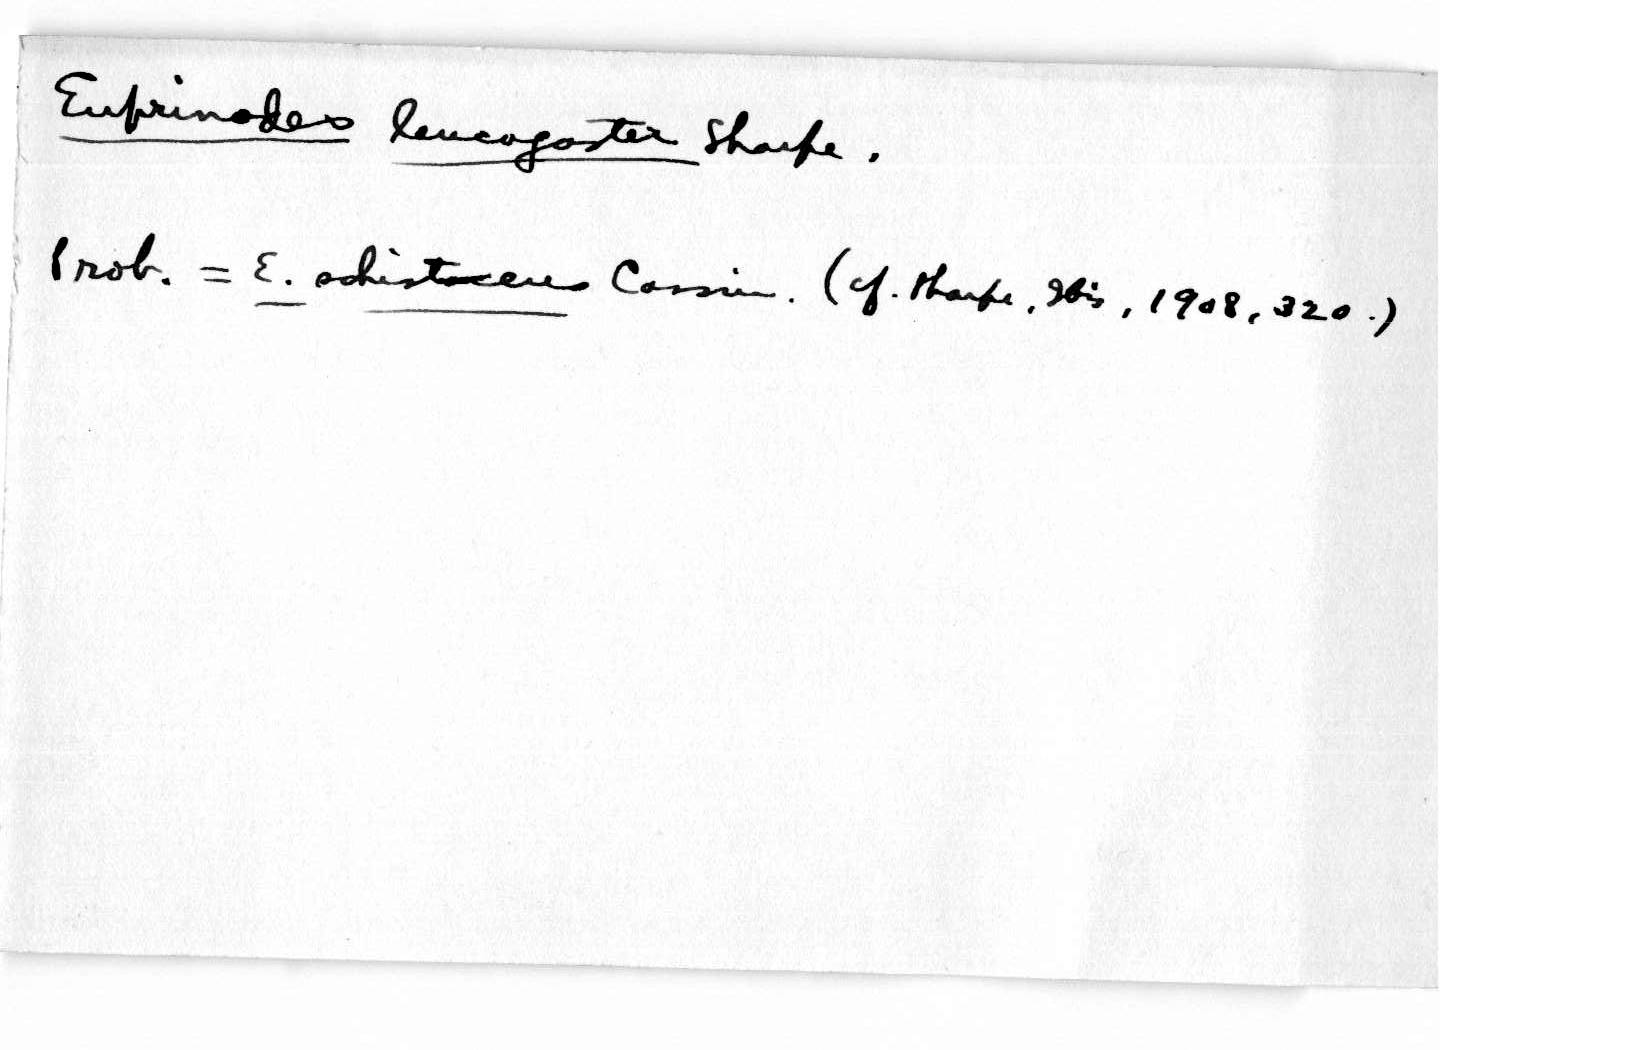 Euprinodes leucogaster Sharpe.
Prob. = E. schistaceus Cassin. (cf. Sharpe, Ibis, 1908, 320.)